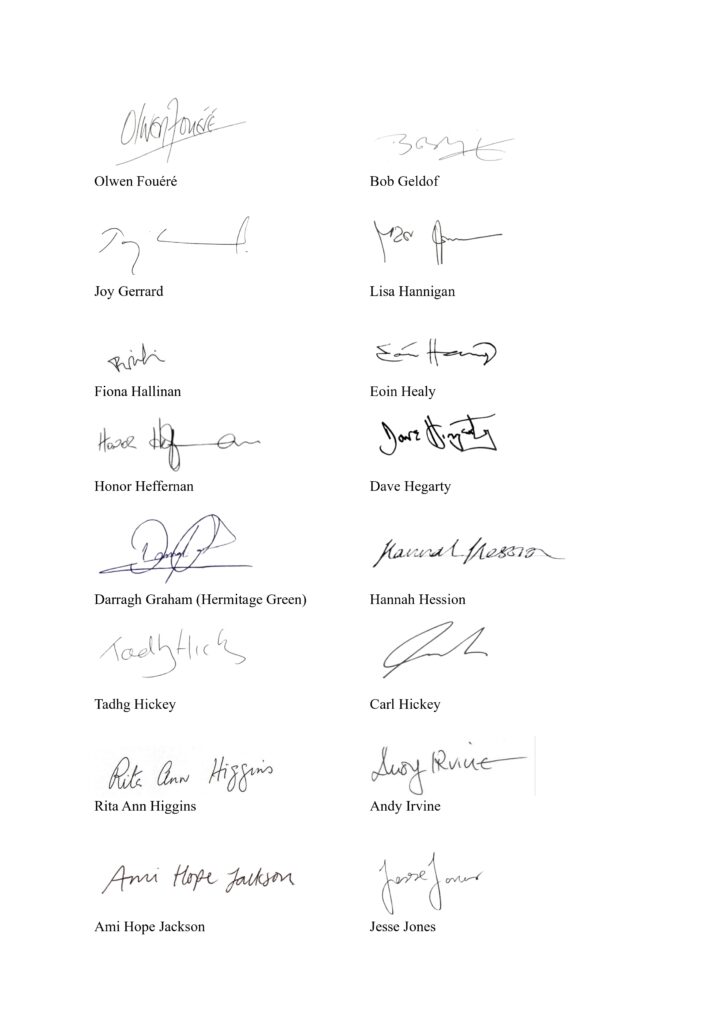 Olwen Fouéré
Olwen Fouéré
Bob Geldof
Joy Gerrard
Lisa Hannigan
Fiona Hallinan
Eoin Healy
Honor Heffernan
Dave Hegarty
Dave Hegarty
Darragh Graham (Hermitage Green)
Hannah Hession
Hannah Hession
Tadhg Hick
Tadhg Hickey
Carl Hickey
Rita Ann Higgins
Andy Irvine
Rita Ann Higgins
Andy Irvine
Ami Hope Jackson
Jesse Jones
Ami Hope Jackson
Jesse Jones